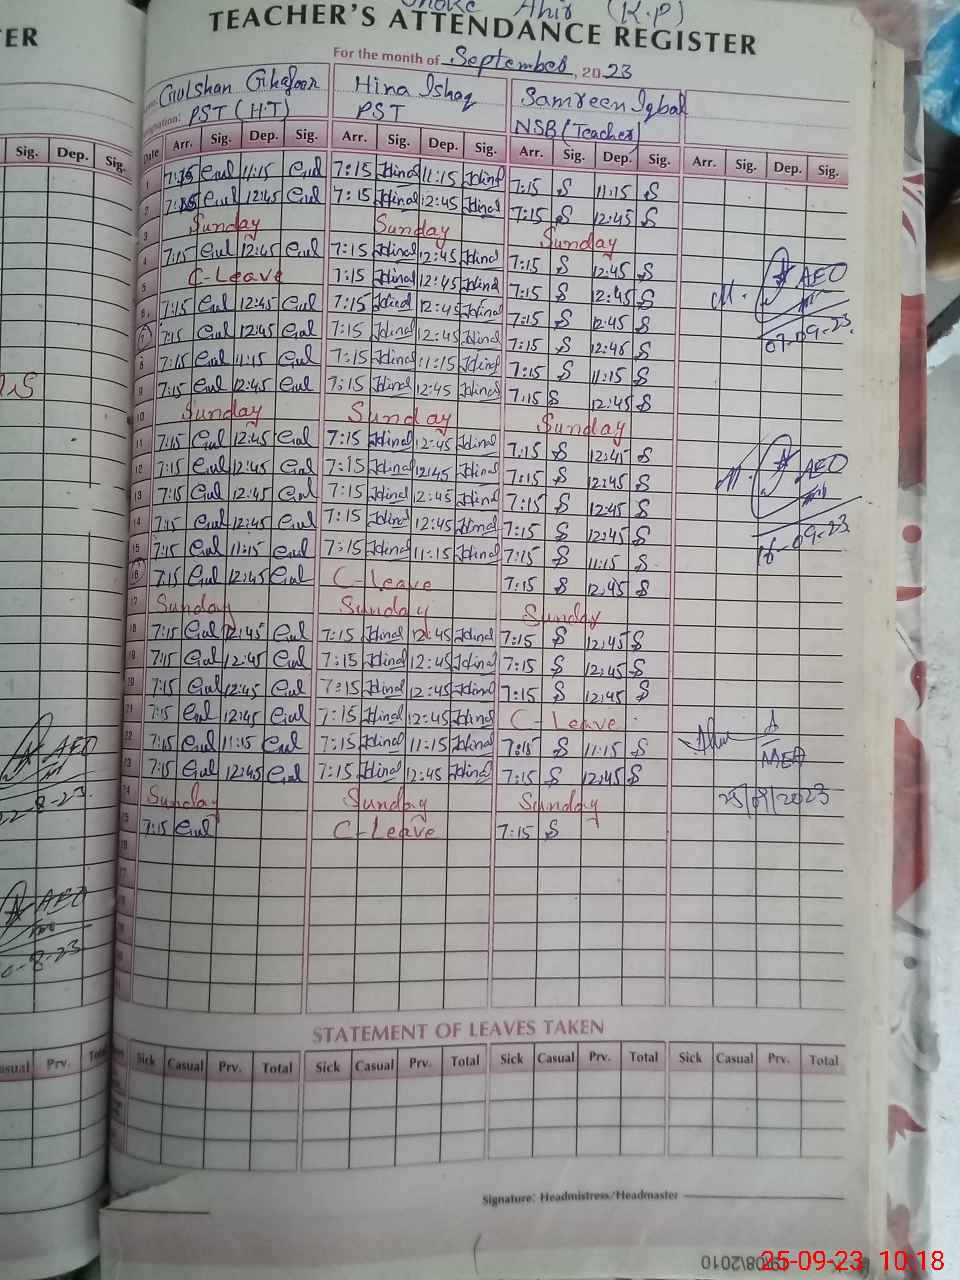 Ahir (K.P)
TEACHER'S ATTENDANCE REGISTER
For the month of September, 2023
Gulshan Ghafoor Hina Ishaq Samreen Iqbal
PST (H.T) PST NSB (Teacher)
Date Arr. Sig. Dep. Sig. Arr. Sig. Dep. Sig. Arr. Sig. Dep. Sig. Arr. Sig. Dep. Sig.
1 7:15 Gul 11:15 Gul 7:15 Hina 11:15 Hina 7:15 S 11:15 S
2 7:15 Gul 12:45 Gul 7:15 Hina 12:45 Hina 7:15 S 12:45 S
3 Sunday Sunday Sunday
4 7:15 Gul 12:45 Gul 7:15 Hina 12:45 Hina 7:15 S 12:45 S
5 C-Leave 7:15 Hina 12:45 Hina 7:15 S 12:45 S
6 7:15 Gul 12:45 Gul 7:15 Hina 12:45 Hina 7:15 S 12:45 S
7 7:15 Gul 12:45 Gul 7:15 Hina 12:45 Hina 7:15 S 12:45 S
8 7:15 Gul 11:15 Gul 7:15 Hina 11:15 Hina 7:15 S 11:15 S
9 7:15 Gul 12:45 Gul 7:15 Hina 12:45 Hina 7:15 S 12:45 S
10 Sunday Sunday Sunday
11 7:15 Gul 12:45 Gul 7:15 Hina 12:45 Hina 7:15 S 12:45 S
12 7:15 Gul 12:45 Gul 7:15 Hina 12:45 Hina 7:15 S 12:45 S
13 7:15 Gul 12:45 Gul 7:15 Hina 12:45 Hina 7:15 S 12:45 S
14 7:15 Gul 12:45 Gul 7:15 Hina 12:45 Hina 7:15 S 12:45 S
15 7:15 Gul 11:15 Gul 7:15 Hina 11:15 Hina 7:15 S 11:15 S
16 7:15 Gul 12:45 Gul C-Leave 7:15 S 12:45 S
17 Sunday Sunday Sunday
18 7:15 Gul 12:45 Gul 7:15 Hina 12:45 Hina 7:15 S 12:45 S
19 7:15 Gul 12:45 Gul 7:15 Hina 12:45 Hina 7:15 S 12:45 S
20 7:15 Gul 12:45 Gul 7:15 Hina 12:45 Hina 7:15 S 12:45 S
21 7:15 Gul 12:45 Gul 7:15 Hina 12:45 Hina C-Leave
22 7:15 Gul 11:15 Gul 7:15 Hina 11:15 Hina 7:15 S 11:15 S
23 7:15 Gul 12:45 Gul 7:15 Hina 12:45 Hina 7:15 S 12:45 S
24 Sunday Sunday Sunday
25 7:15 Gul C-Leave 7:15 S
AEO
07-09-23
AEO
16-09-23
MEA
25/09/2023
STATEMENT OF LEAVES TAKEN
Sick Casual Prv. Total Sick Casual Prv. Total Sick Casual Prv. Total Sick Casual Prv. Total
Signature: Headmistress/Headmaster
Sig. Dep. Sig.
AEO
22-8-23
AEO
Prv.
25-09-23 10:18